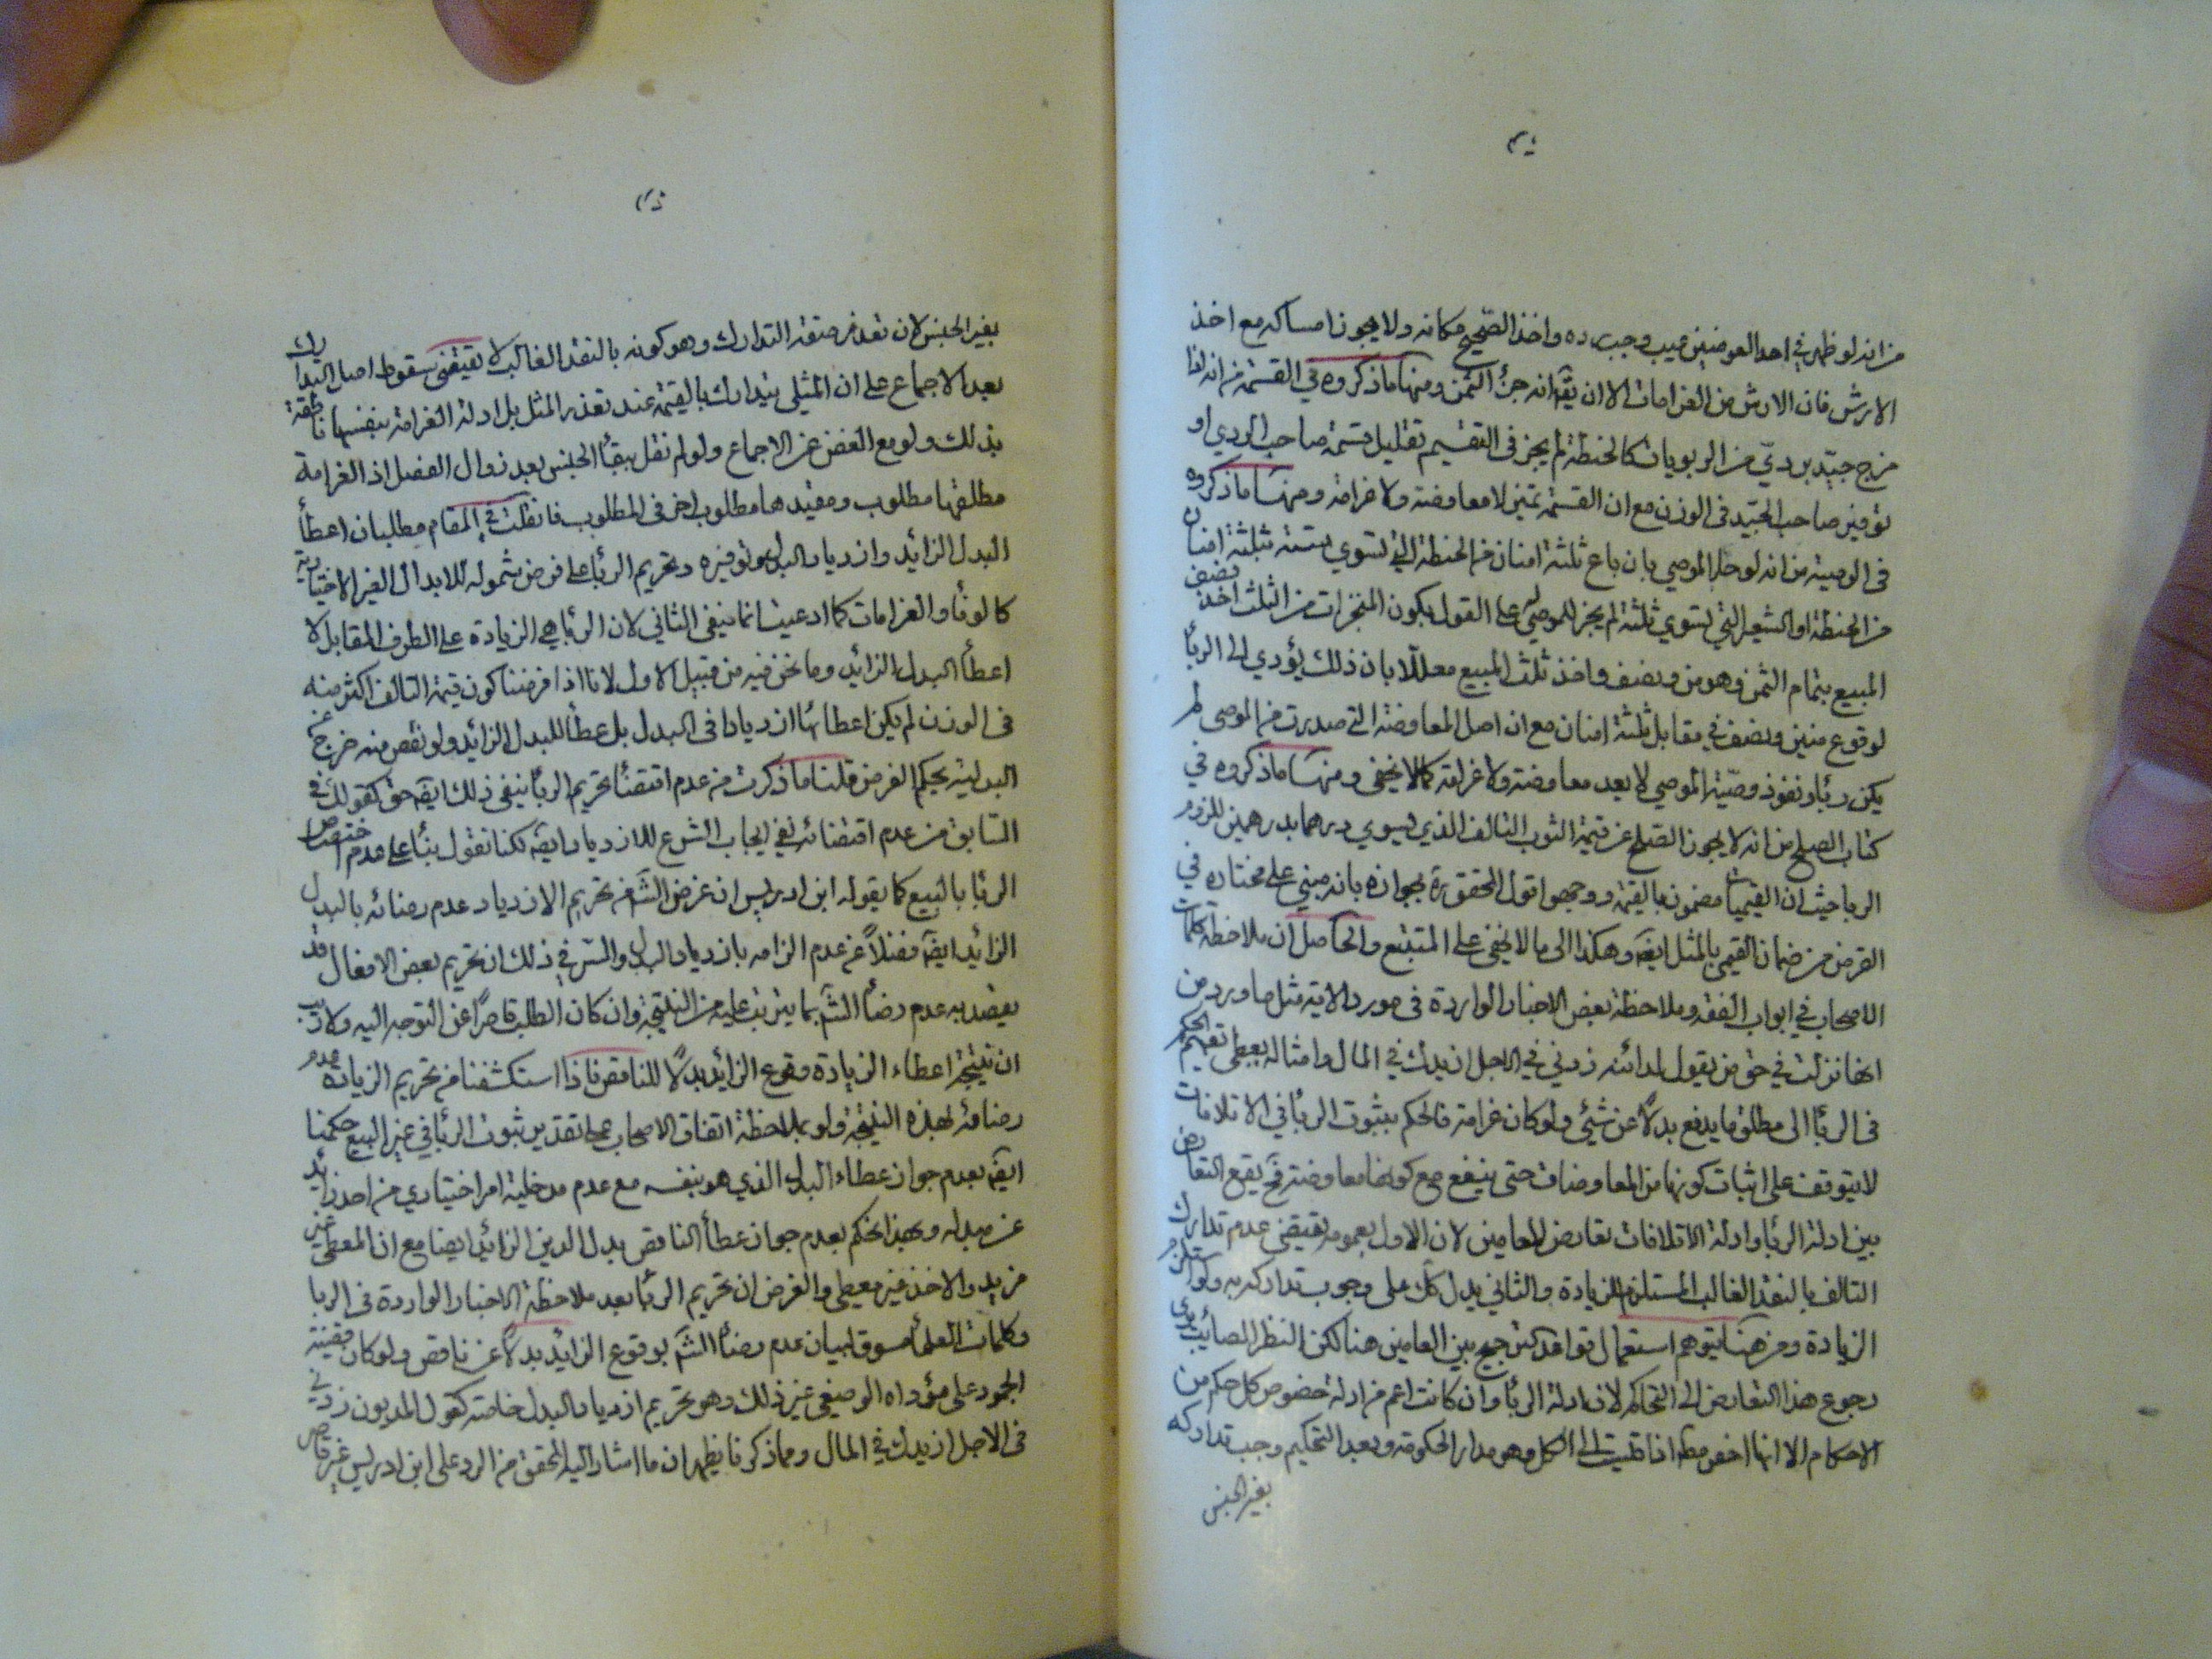 من انه لو ظهر في احد العوضين عيب وجب رده واخذ الصحيح مكانه ولا يجوز امساكه مع اخذ
الارش فان الارش من الغرامات الا ان يقال انه جزء الثمن ومنها ما ذكروه في القسمة من انه اذا
مزج جيد بردي من الربويات كالحنطة لم يجز في التقسيم تقليل قسمة صاحب الردي او
توفير صاحب الجيد في الوزن مع ان القسمة تميز لا معاوضة ولا غرامة ومنها ما ذكروه
في الوصية من انه لو حابا الموصي بان باع ثلثة امنان من الحنطة التي تسوي بستة بثلثة امنان
من الحنطة او الشعير التي تسوي ثلثة لم يجز للموصى على القول بكون المنجزات من الثلث اخذ نصف
المبيع بتمام الثمن وهو من ونصف واخذ ثلث المبيع معللا بان ذلك يؤدي الى الربا
لوقوع منين ونصف في مقابل ثلثة امنان مع ان اصل المعاوضة التي صدرت من الموصي لم
يكن ربا ونفوذ وصية الموصي لا يعد معاوضة ولا غرامة كما لا يخفى ومنها ما ذكروه في
كتاب الصلح من انه لا يجوز الصلح عن قيمة الثوب التالف الذي يسوي درهما بدرهمين للزوم
الربا حيث ان القيميات مضمون بالقيمة ووجهوا قول المحقق ره بجوازه بانه مبني على مختاره في
القرض من ضمان القيمي بالمثل ايضا وهكذا الى ما لا يخفى على المتتبع والحاصل ان ملاحظة كلمات
الاصحاب في ابواب الفقه وملاحظة بعض الاخبار الواردة في مورد الاية مثل ما ورد من
انها نزلت في حق من يقول لمدائنه زدني في الاجل ازيدك في المال وامثاله يعطى تعميم الحكم
في الربا الى مطلق ما يدفع بدلا عن شيء ولو كان غرامة فالحكم بثبوت الربا في الاتلافات
لا يتوقف على اثبات كونها من المعاوضات حتى ينفع منع كونها معاوضة فح يقع التعارض
بين ادلة الربا وادلة الاتلافات تعارض العامين لان الاول بعمومه يقتضي عدم تدارك
التالف بالنقد الغالب المستلزم للزيادة والثاني يدل كك على وجوب تداركه به ولو استلزم
الزيادة ومن هنا يتوهم استعمال قواعد الترجيح بين العامين هنا لكن النظر الصائب يؤدي
رجوع هذا التعارض الى التحاكم لان ادلة الربا وان كانت اعم من ادلة خصوص كل حكم من
الاحكام الا انها اخص مطلقا اذا قيست الى الكل وهو مدار الحكومة وبعد التحكيم وجب تداركه
بغير الجنس
بغير الجنس لان تعذر صفة التدارك وهو كونه بالنقد الغالب لا يقتضي سقوط اصل التدارك
بعد الاجماع على ان المثلي يتدارك بالقيمة عند تعذر المثل بل ادلة الغرامة بنفسها ناطقة
بذلك ولو مع الغض عن الاجماع ولو لم نقل ببقاء الجنس بعد زوال الفصل اذ الغرامة
مطلقها مطلوب ومقيدها مطلوب اخر في المطلوب فان قلت في المقام مطلبان اعطاء
البدل الزائد وازدياد البدل وتوفيره وتحريم الربا على فرض شموله للابدال الغير الاختيارية
كالوفاء والغرامات كما ادعيت انما ينفي الثاني لان الربا هي الزيادة على الطرف المقابل لا
اعطاء البدل الزائد وما نحن فيه من قبيل الاول لانا اذا فرضنا كون قيمة التالف اكثر منه
في الوزن لم يكن اعطائها ازديادا في البدل بل عطاء للبدل الزائد ولو نقص منه خرج عن
البدلية بحكم الفرض قلنا ما ذكرت من عدم اقتضاء تحريم الربا نفي ذلك ايضا حق كقولك في
السابق من عدم اقتضائه نفي ايجاب الشرع للازدياد ايضا لكنا نقول بناء على عدم اختصاص
الربا بالبيع كما يقوله ابن ادريس ان غرض الشارع من تحريم الازدياد عدم رضائه بالبدل
الزائد ايضا فضلا عن عدم الزامه بازدياد البدل والسر في ذلك ان تحريم بعض الافعال قد
يقصد به عدم رضاء الشارع بما يترتب عليه من النتيجة وان كان الطلب قاصرا عن التوجه اليه ولا ريب
ان نتيجة اعطاء الزيادة وقوع الزائد بدلا للناقص فاذا استكشفنا من تحريم الزيادة عدم
رضائه لهذه النتيجة ولو بملاحظة اتفاق الاصحاب على تقدير ثبوت الربا في غير البيع حكمنا
ايضا بعدم جواز عطاء البدل الذي هو بنفسه مع عدم مدخلية امر اختياري من احد زائد
عن مبدله وبهذا نحكم بعدم جواز عطاء الناقص بدل الدين الزائد ايضا مع ان المعطي غير
مزيد والاخذ غير معطي والغرض ان تحريم الربا بعد ملاحظة الاخبار الواردة في الربا
وكلمات العلماء مسوق لبيان عدم رضاء الشارع بوقوع الزائد بدلا عن ناقص ولو كان قضية
الجمود على مؤداه الوصفي غير ذلك وهو تحريم ازدياد البدل خاصة كقول المديون زدني
في الاجل ازيدك في المال ومما ذكرنا يظهر ان ما اشار اليه المحقق من الرد على ابن ادريس غير قاصر